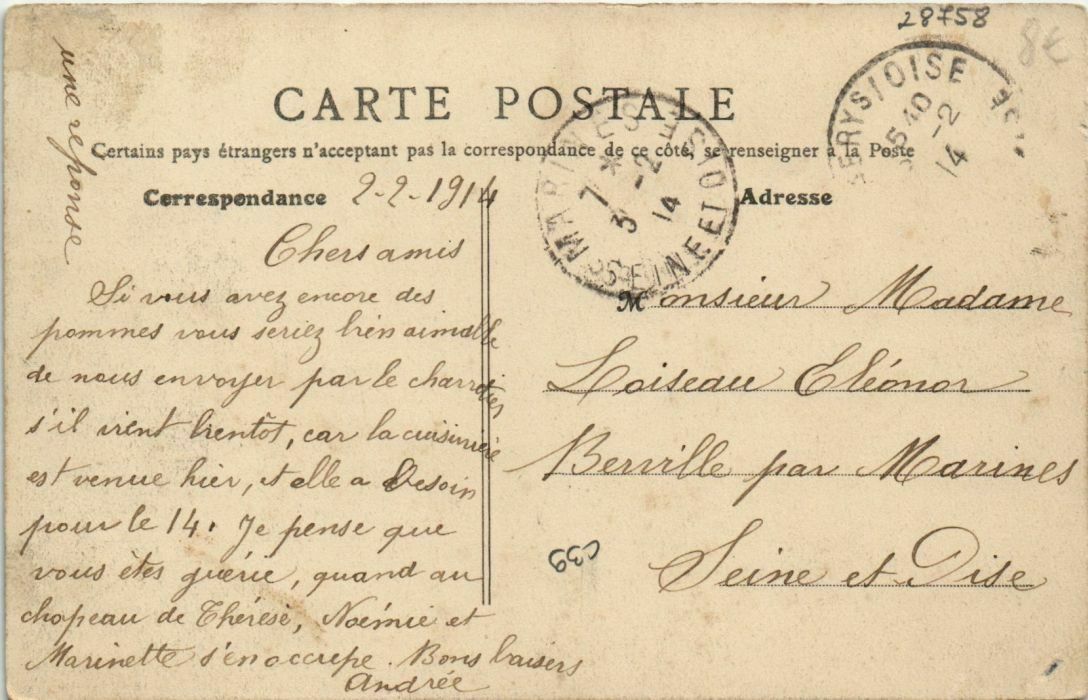 28758
8€
CARTE POSTALE
Certains pays étrangers n'acceptant pas la correspondance de ce côté, se renseigner à la Poste
Correspondance
2-2-1914
Chers amis
Si vous avez encore des
pommes vous seriez bien aimable
de nous envoyer par le charretier
s'il vient bientôt, car la cuisinière
est venue hier, et elle a besoin
pour le 14. Je pense que
vous êtes guérie, quand au
chapeau de Thérèse, Noémie et
Marinette s'en occupe. Bons baisers
Andrée
une reponse
MARINES
SEINE ET OISE
7 *
3 -2
14
S/OISE
-2
14
Adresse
Monsieur Madame
Loiseau Eléonor
Berville par Marines
Seine et Oise
C39